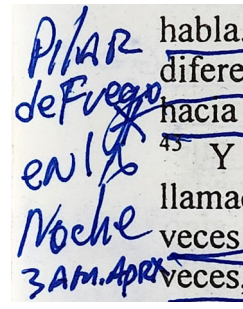 PILAR
de Fuego
en lA
Noche
3 AM. APRX
habla
difere
hacia
45 Y
llamad
veces
veces,